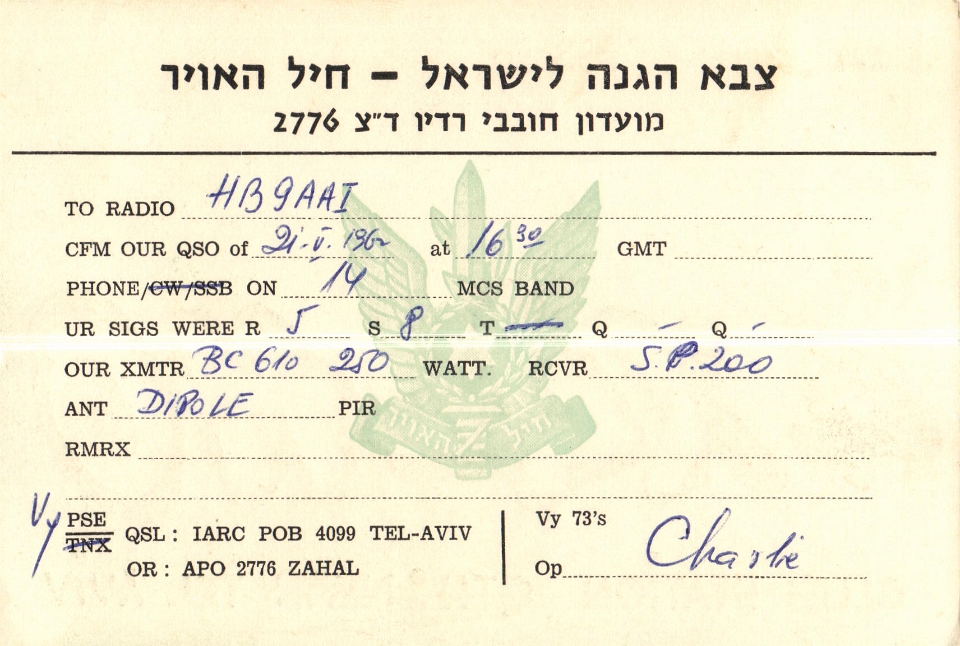 צבא הגנה לישראל – חיל האויר
מועדון חובבי רדיו ד״צ 2776
TO RADIO HB9AAI
CFM OUR QSO of 21-V-1962 at 16 30 GMT
PHONE/CW/SSB ON 14 MCS BAND
UR SIGS WERE R 5 S 8 T — Q – Q –
OUR XMTR BC 610 250 WATT. RCVR S.P. 200
ANT DIPOLE PIR
RMRX
חיל האויר
Vy PSE
TNX QSL: IARC POB 4099 TEL-AVIV
OR: APO 2776 ZAHAL
Vy 73's
Op Charlie